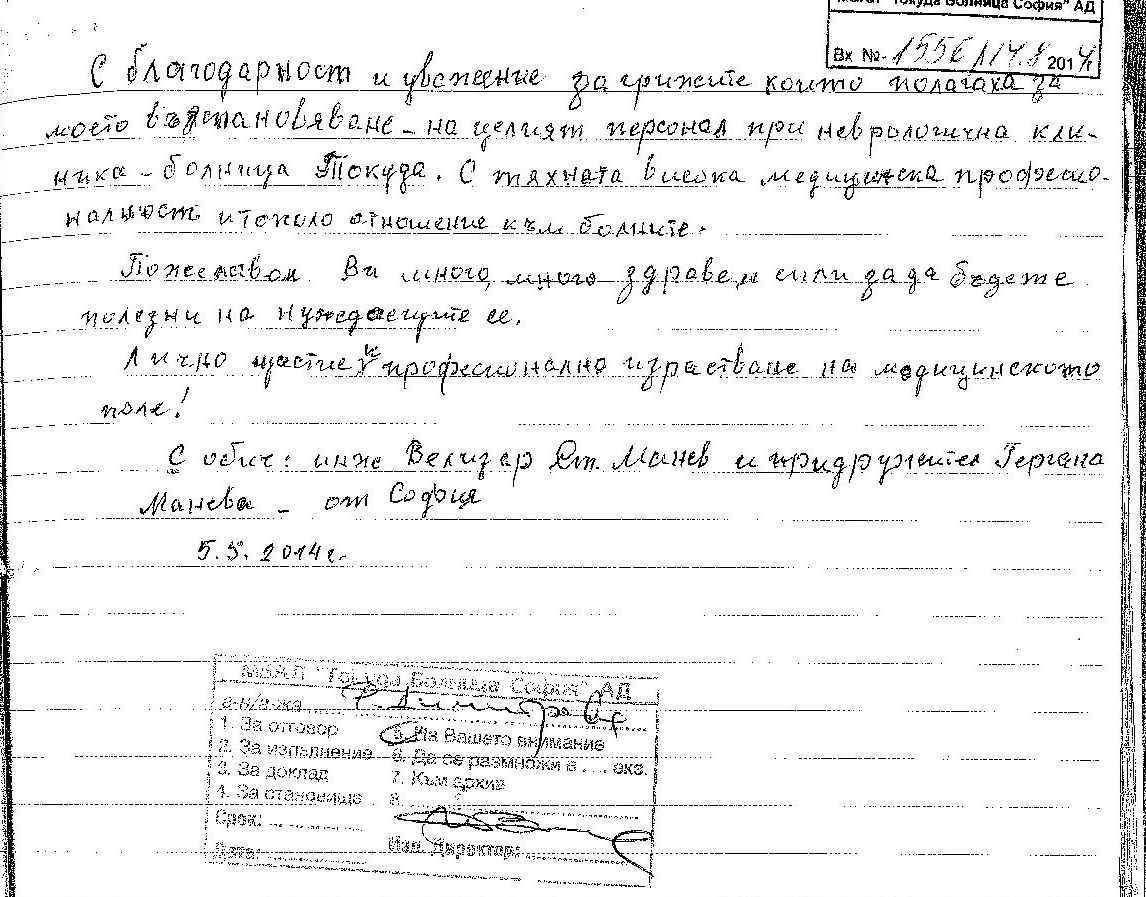 МБАЛ "Токуда Болница София" АД
Вх №. 1556/14.8 2014г
С благодарност и уважение за грижите които полагаха за
моето възтановяване - на целият персонал при неврологична кли-
ника - болница Токуда. С тяхната висока медицинска професио-
налност и топло отношение към болните.
Пожелавам Ви много, много здраве, и сили за да бъдете
полезни на нуждаещите се.
Лично щастие и професионално израстване на медицинското
поле!
С обич: инж Велизар Ст. Манев и придружител Гергана
Манева - от София
5.5.2014г.
МБАЛ "Токуда Болница София" АД
г-н/г-жа Димитрова
1. За отговор
5. На Вашето внимание
2. За изпълнение
6. Да се размножи в .... екз.
3. За доклад
7. Към архив
4. За становище
8.
Срок: ..................
Дата: ..................
Изп. Директор: ..................